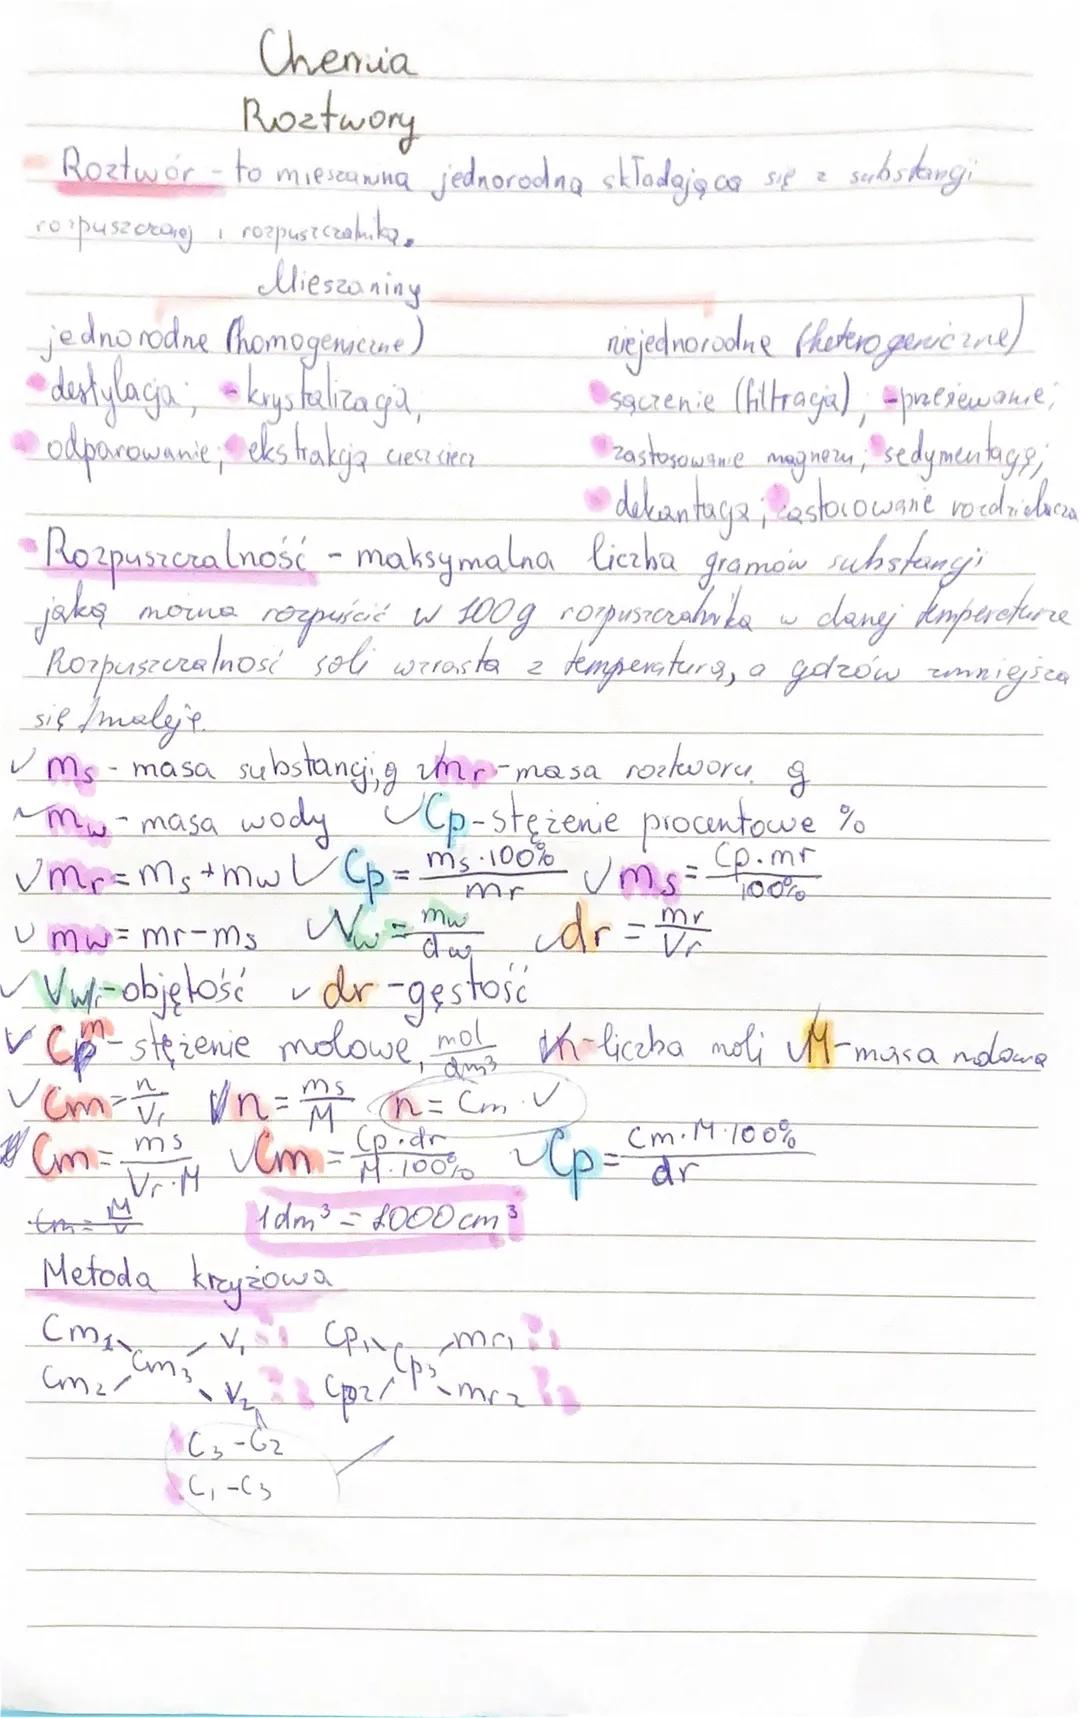 Chemia
Roztwory
Roztwór - to mieszaniną jednorodną składającą się z substancji
rozpuszczonej i rozpuszczalnika.
Mieszaniny
jednorodne (homogeniczne) niejednorodne (heterogeniczne)
• destylacja; - krystalizacja, • sączenie (filtracja), - przesiewanie;
• odparowanie; • ekstrakcja ciecz ciecz • zastosowanie magnezu; • sedymentacja;
• dekantacja; zastosowanie rozdzielacza
• Rozpuszczalność - maksymalna liczba gramów substancji
jaką można rozpuścić w 100g rozpuszczalnika w danej temperaturze
Rozpuszczalność soli wzrasta z temperaturą, a gazów zmniejsza
się /maleje.
✓ ms - masa substancji, g ✓ mr - masa roztworu, g
~ mw - masa wody ✓ Cp - stężenie procentowe %
✓ mr = ms + mw ✓ Cp = ms·100%/mr ✓ ms = Cp·mr/100%
✓ mw = mr - ms Vw = mw/dw ✓ dr = mr/Vr
✓ Vw/r - objętość ✓ dr - gęstość
✓ Cm - stężenie molowe, mol/dm³ n - liczba moli M - masa molowa
✓ Cm = n/Vr n = ms/M n = Cm·V
Cm = ms/Vr·M ✓ Cm = Cp·dr/M·100% ✓ Cp = Cm·M·100%/dr
Cm = M/V 1dm³ = 1000cm³
Metoda krzyżowa
Cm1 V1 : 1 Cp1 mr1 : 1
Cm3 Cp3
Cm2 V2 : 2 Cp2 mr2 : 2
C3 - C2
C1 - C3